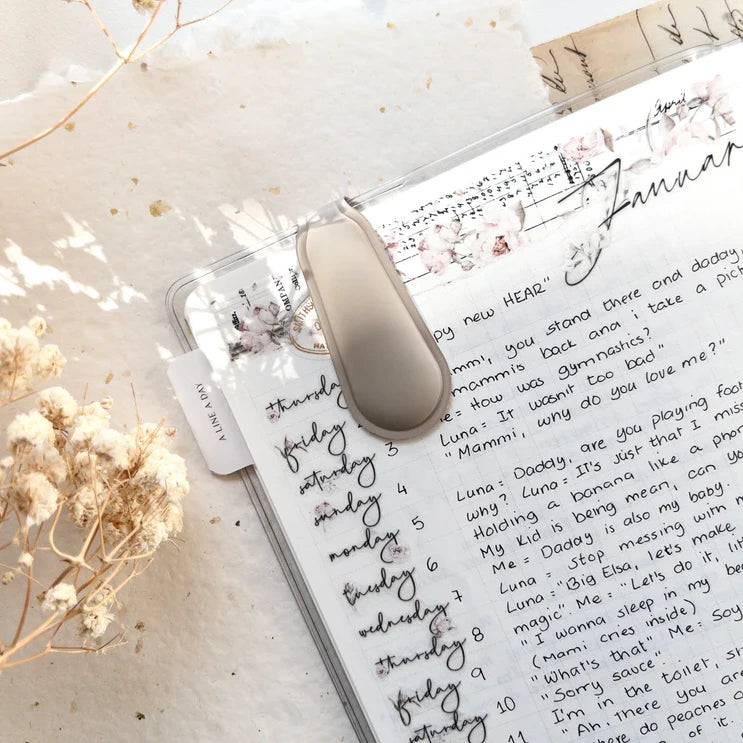 April
Januar
py new HEAR"
mmi, you stand there and daddy
mammi's back and i take a pict
e= How was gymnastics?
Luna= It wasnt too bad"
"Mammi, why do you love me?"
Luna= Daddy, are you playing foot
why? Luna= It's just that I miss
Holding a banana like a phon
My kid is being mean, can you
Me = Daddy is also my baby.
Luna = stop messing with m
Luna= "Big Elsa, let's make
magic". Me= "Let's do it, lit
"I wanna sleep in my be
(Mami cries inside)
"What's that" Me= Soy
"Sorry sauce"
I'm in the toilet, sh
"Ah! There you are
here do peaches
of it.
A LINE A DAY
thursday
friday 3
saturday 4
sunday 5
monday 6
tuesday 7
wednesday 8
thursday 9
friday 10
saturday 11